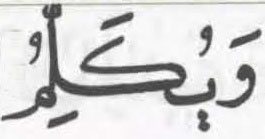 وَيُكَلِّمُ